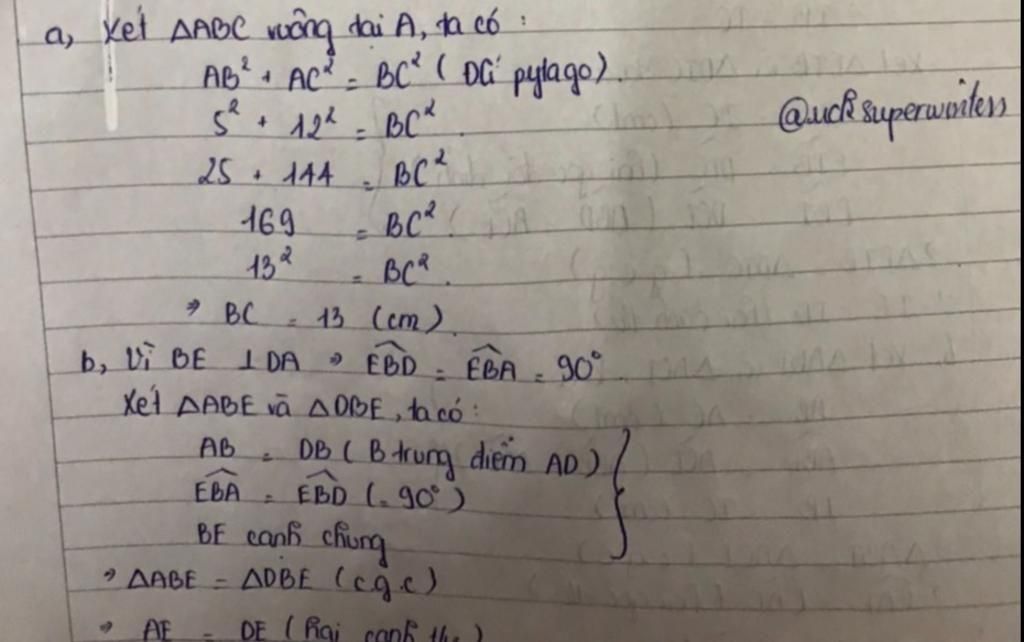 a, Xét ΔABC vuông tại A, ta có :
AB² + AC² = BC² ( ĐLí pytago).
5² + 12² = BC².
@uchsuperwriters
25 + 144 = BC²
169 = BC².
13² = BC².
⇒ BC = 13 (cm).
b, Vì BE ⊥ DA ⇒ EBD̂ = EBÂ = 90°.
Xét ΔABE và ΔDBE, ta có :
AB = DB ( B trung điểm AD)
EBÂ = EBD̂ (= 90°)
BE cạnh chung
⇒ ΔABE = ΔDBE (c.g.c)
⇒ AE = DE ( hai cạnh